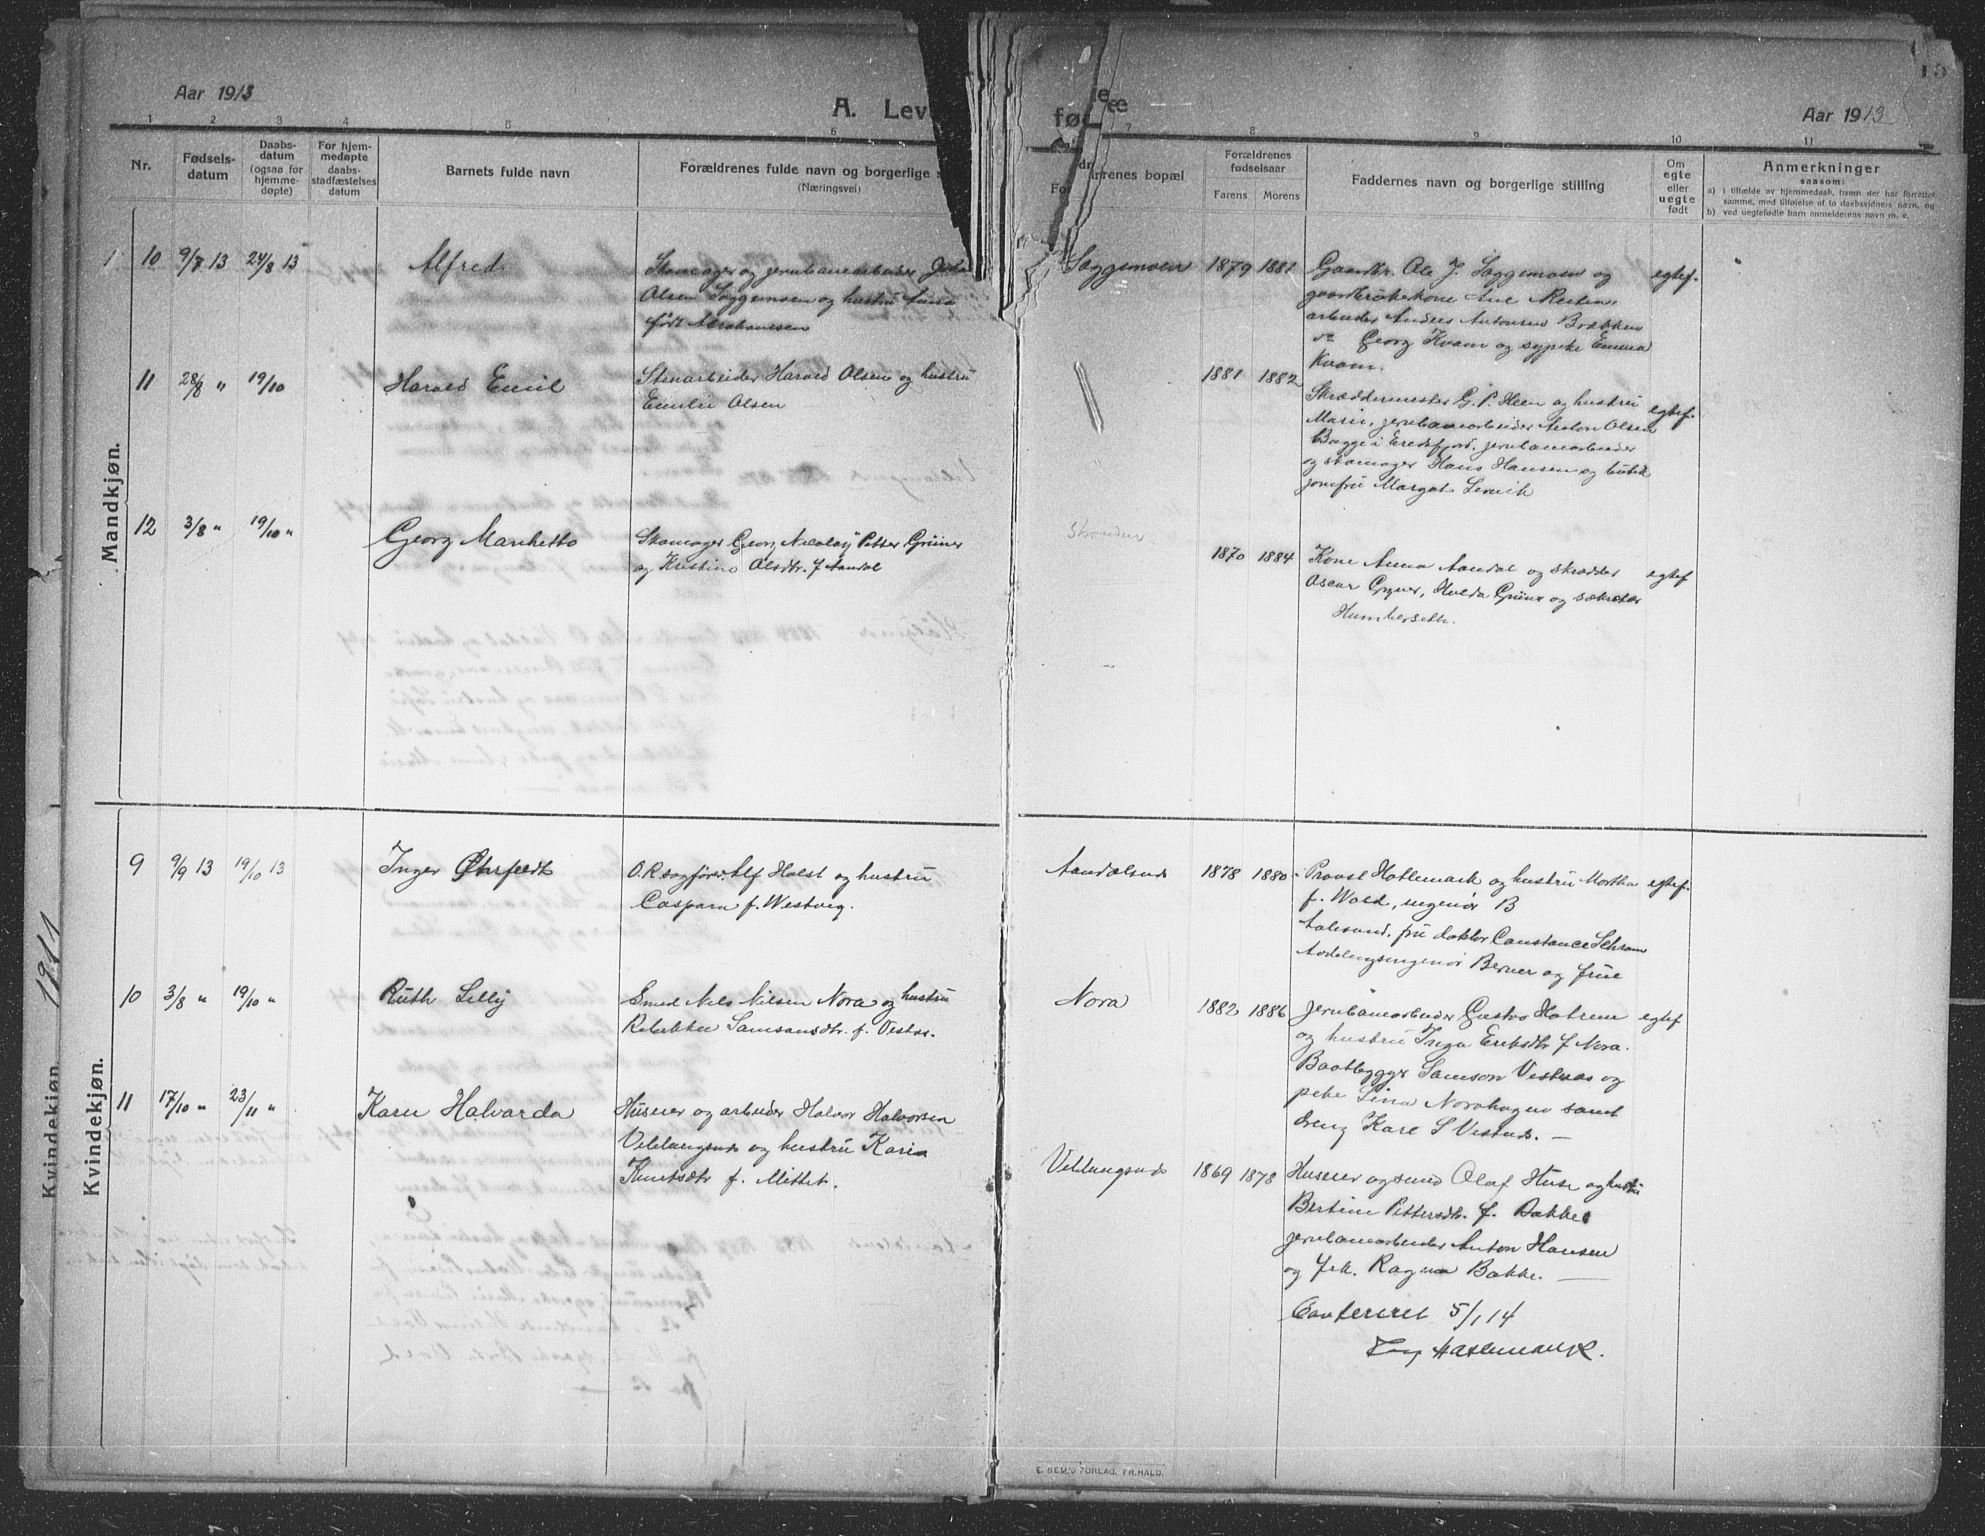 Aar 1913
A. Lev
fø
Aar 1913
15
1 2 3 4 5 6 7 8 9 10 11
Nr.
Fødsels-
datum
Daabs-
datum
(ogsaa for
hjemme-
døpte)
For hjem-
medøpte
daabs-
stadfæstelses
datum
Barnets fulde navn
Forældrenes fulde navn og borgerlige s
(Næringsvei)
rrenes bopæl
Forældrenes
fødselsaar
Farens Morens
Faddernes navn og borgerlige stilling
Om
egte
eller
uegte
født
Anmerkninger
saasom:
a) i tilfælde av hjemmedaab, hvem der har forrettet
samme, med tilføielse af to daabsvidners navn, og
b) ved uegtefødte barn anmelderens navn m. v.
Mandkjøn.
10 9/7 13 24/8 13
Alfred
Skomager og jernbanearbeider
Olsen Soggemoen og hustru
født Abrahamsen
Soggemoen 1879 1881
Gaardbr. Ole J. Soggemoen og
gaardbrukerkone Ane
arbeider Anders Antonsen Brækken
Georg Kvam og sypike Emma
Kvam.
egtef.
11 28/8 " 19/10
Harald Emil
Stenarbeider Harald Olsen og hustru
Emilie Olsen
1881 1882
Skræddermester G. P. Heen og hustru
Marie, jernbanearbeider Anton Olsen
Bugge i Eresfjord, jernbanearbeider
og skomager Hans Hansen og butik
jomfru Margot
egtef.
12 3/8 " 19/10 "
Georg
Skomager Georg Nicolay Petter Grüner
og Kristine Olsdtr. f. Aandal
1870 1884
Kone Anna Aandal og skrædder
Oscar Hulda Grüner og
egtef
Kvindekjøn.
9 9/9 13 19/10 13
Inger Øhrfeldt
O.R.sagfører Alf Holst og hustru
Caspara f. Westveg.
Aandalsnes 1878 1880
Provst Hatlemark og hustru Martha
f. Wold, ingeniør B
Aalesund, fru doktor Constance Schram
Avdelingsingeniør Berner og frue
egtef.
10 3/8 " 19/10 "
Ruth Lilly
Smed Nils Nilsen Nora og hustru
Rebekka Samsonsdtr. f. Vestnes.
Nora 1882 1886
Jernbanearbeider Gustav
og hustru Inga Eriksdtr f Nora.
Baatbygger Samson Vestnes og
pike Lina Norahagen samt
dreng Kare S Vestnes. —
egtef
11 17/10 " 23/11 "
Karen Halvarda
Huseier og arbeider Halvor Halvorsen
Veblungsnes og hustru Karia
Knutsdtr f. Mittet.
Veblungsnes 1869 1878
Huseier og smed Olaf Huse og hustru
Bertine Pettersdtr. f. Bakke
jernbanearbeider Anton Hansen
og frk. Ragna Bakke. —
Confereret 5/1 14
Hatlemark.
1911
Kvindekjøn.
E. SEM'S FORLAG, FR.HALD.